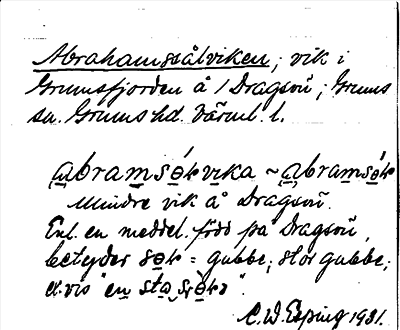 Abrahamssålviken; vik i
Grumsfjorden å / Dragsön; Grums
sn. Grums hd. Värml. l.
abramsøkvika ~ abramsøk
Mindre vik å Dragsön.
Enl. en meddel. född på Dragsön,
betyder søk = gubbe; stor gubbe;
"en
C. W. Esping 1931.